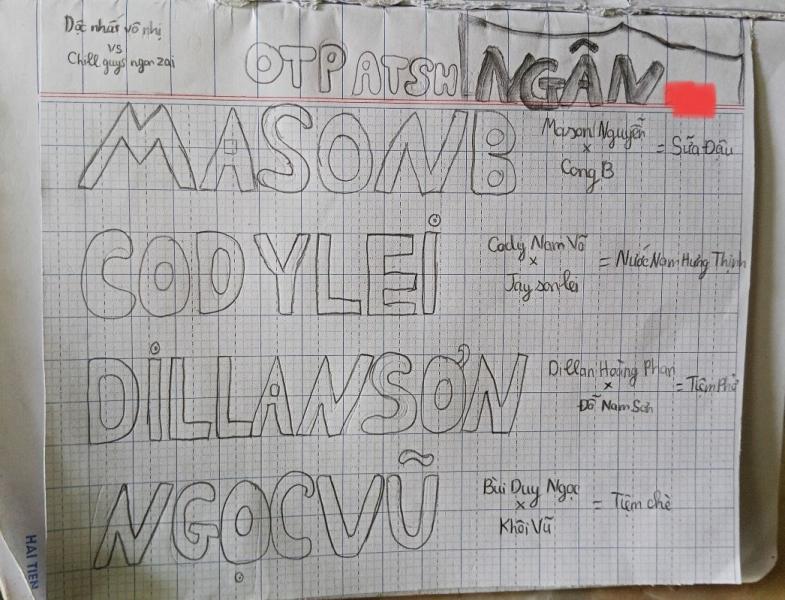 Độc nhất vô nhị
vs
Chill guys ngon zai
OTP ATSH NGÂN
MASONB
Mason Nguyễn
×
Cong B
= Sữa Đậu
CODYLEI
Cody Nam Võ
×
Jay son lei
= Nước Nam Hưng Thịnh
DILLANSƠN
Dillan Hoàng Phan
×
Đỗ Nam Sơn
= Tiệm Phở
NGỌCVŨ
Bùi Duy Ngọc
×
Khôi Vũ
= Tiệm chè
HAI TIEN